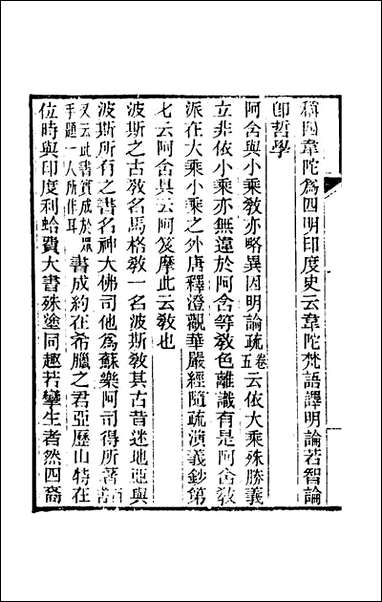 稱四韋陀爲四明印度史云韋陀梵語譯明論若智論
卽哲學
阿舍與小乘教亦略異因明論疏卷五云依大乘殊勝義
立非依小乘亦無違於阿舍等教色離識有是阿舍教
派在大乘小乘之外唐釋澄觀華嚴經隨疏演義鈔第
七云阿舍具云阿笈摩此云教也
波斯之古教名馬格教一名波斯教其古昔迷地亞與
波斯所有之書名神大佛司他爲蘇樂阿司得所著諾
又云此書實成於眾手題一人所作耳書成約在希臘之君亞歷山特在
位時與印度利蛤費大書殊塗同趣若孿生者然四裔